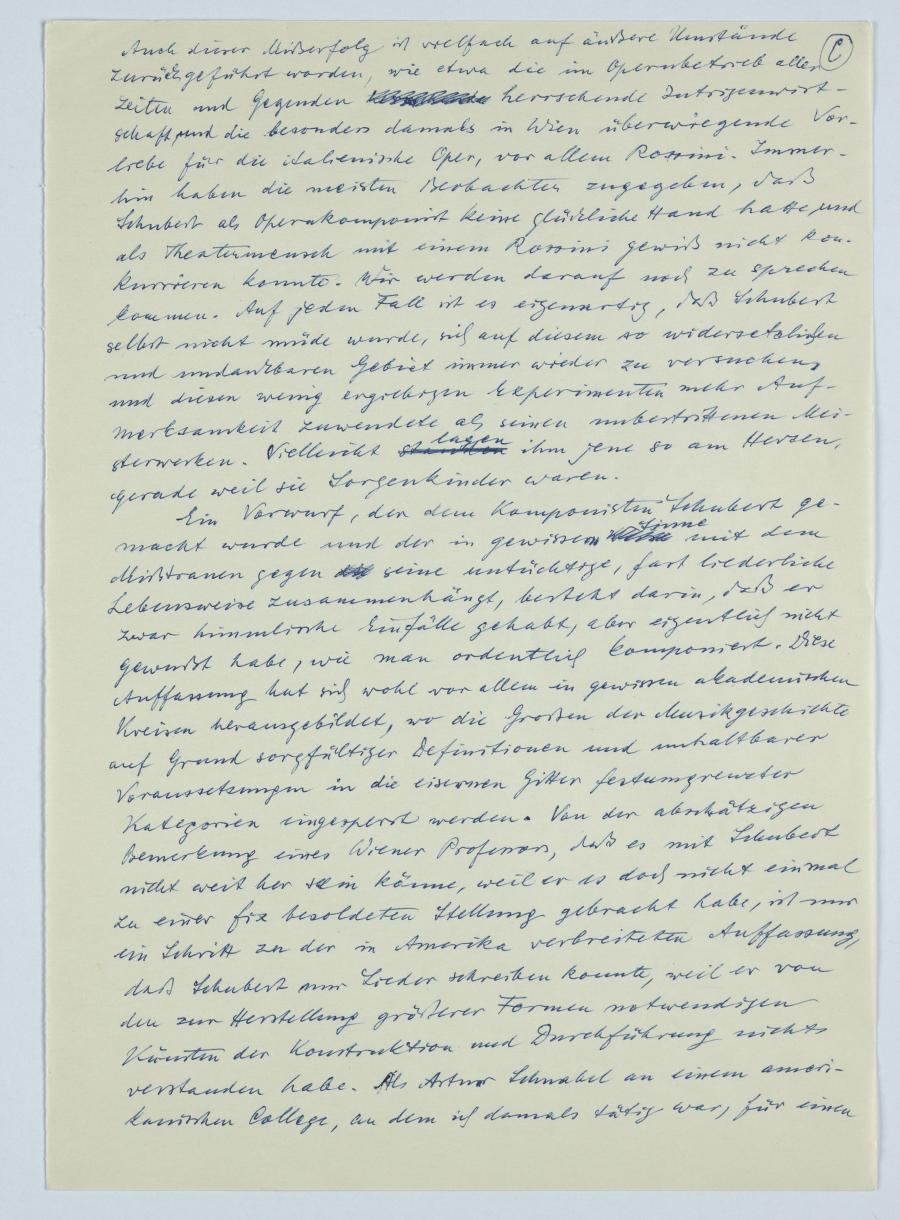 Auch dieser Mißerfolg ist vielfach auf äußere Umstände
C
zurückgeführt worden, wie etwa die im Opernbetrieb aller
Zeiten und Gegenden herrschende Intrigenwirt-
schaft, und die besonders damals in Wien überwiegende Vor-
liebe für die italienische Oper, vor allem Rossini. Immer-
hin haben die meisten Beobachter zugegeben, daß
Schubert als Opernkomponist keine glückliche Hand hatte, und
als Theatermensch mit einem Rossini gewiß nicht kon-
kurrieren konnte. Wir werden darauf noch zu sprechen
kommen. Auf jeden Fall ist es eigenartig, daß Schubert
selbst nicht müde wurde, sich auf diesem so widersetzlichen
und undankbaren Gebiet immer wieder zu versuchen,
und diesen wenig ergiebigen Experimenten mehr Auf-
merksamkeit zuwendete als seinen unbestrittenen Mei-
sterwerken. Vielleicht standen lagen ihm jene so am Herzen,
gerade weil sie Sorgenkinder waren.
Ein Vorwurf, der dem Komponisten Schubert ge-
macht wurde und der in gewissem Sinne mit dem
Mißtrauen gegen die seine untüchtige, fast liederliche
Lebensweise zusammenhängt, besteht darin, daß er
zwar himmlische Einfälle gehabt, aber eigentlich nicht
gewußt habe, wie man ordentlich komponiert. Diese
Auffassung hat sich wohl vor allem in gewissen akademischen
Kreisen herausgebildet, wo die Großen der Musikgeschichte
auf Grund sorgfältiger Definitionen und unhaltbarer
Voraussetzungen in die eisernen Gitter festumgrenzter
Kategorien eingesperrt werden. Von der abschätzigen
Bemerkung eines Wiener Professors, daß es mit Schubert
nicht weit her sein könne, weil er es doch nicht einmal
zu einer fix besoldeten Stellung gebracht habe, ist nur
ein Schritt zu der in Amerika verbreiteten Auffassung,
daß Schubert nur Lieder schreiben konnte, weil er von
den zur Herstellung größerer Formen notwendigen
Künsten der Konstruktion und Durchführung nichts
verstanden habe. Als Artur Schnabel an einem ameri-
kanischen College, an dem ich damals tätig war, für einen